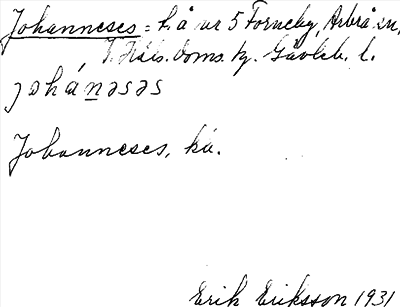 Johanneses = h. å nr 5 Forneby, Arbrå sn,
T. Häls. doms. hg. Gävleb. l.
johánəsəs
Johanneses, hå.
Erik Eriksson 1931